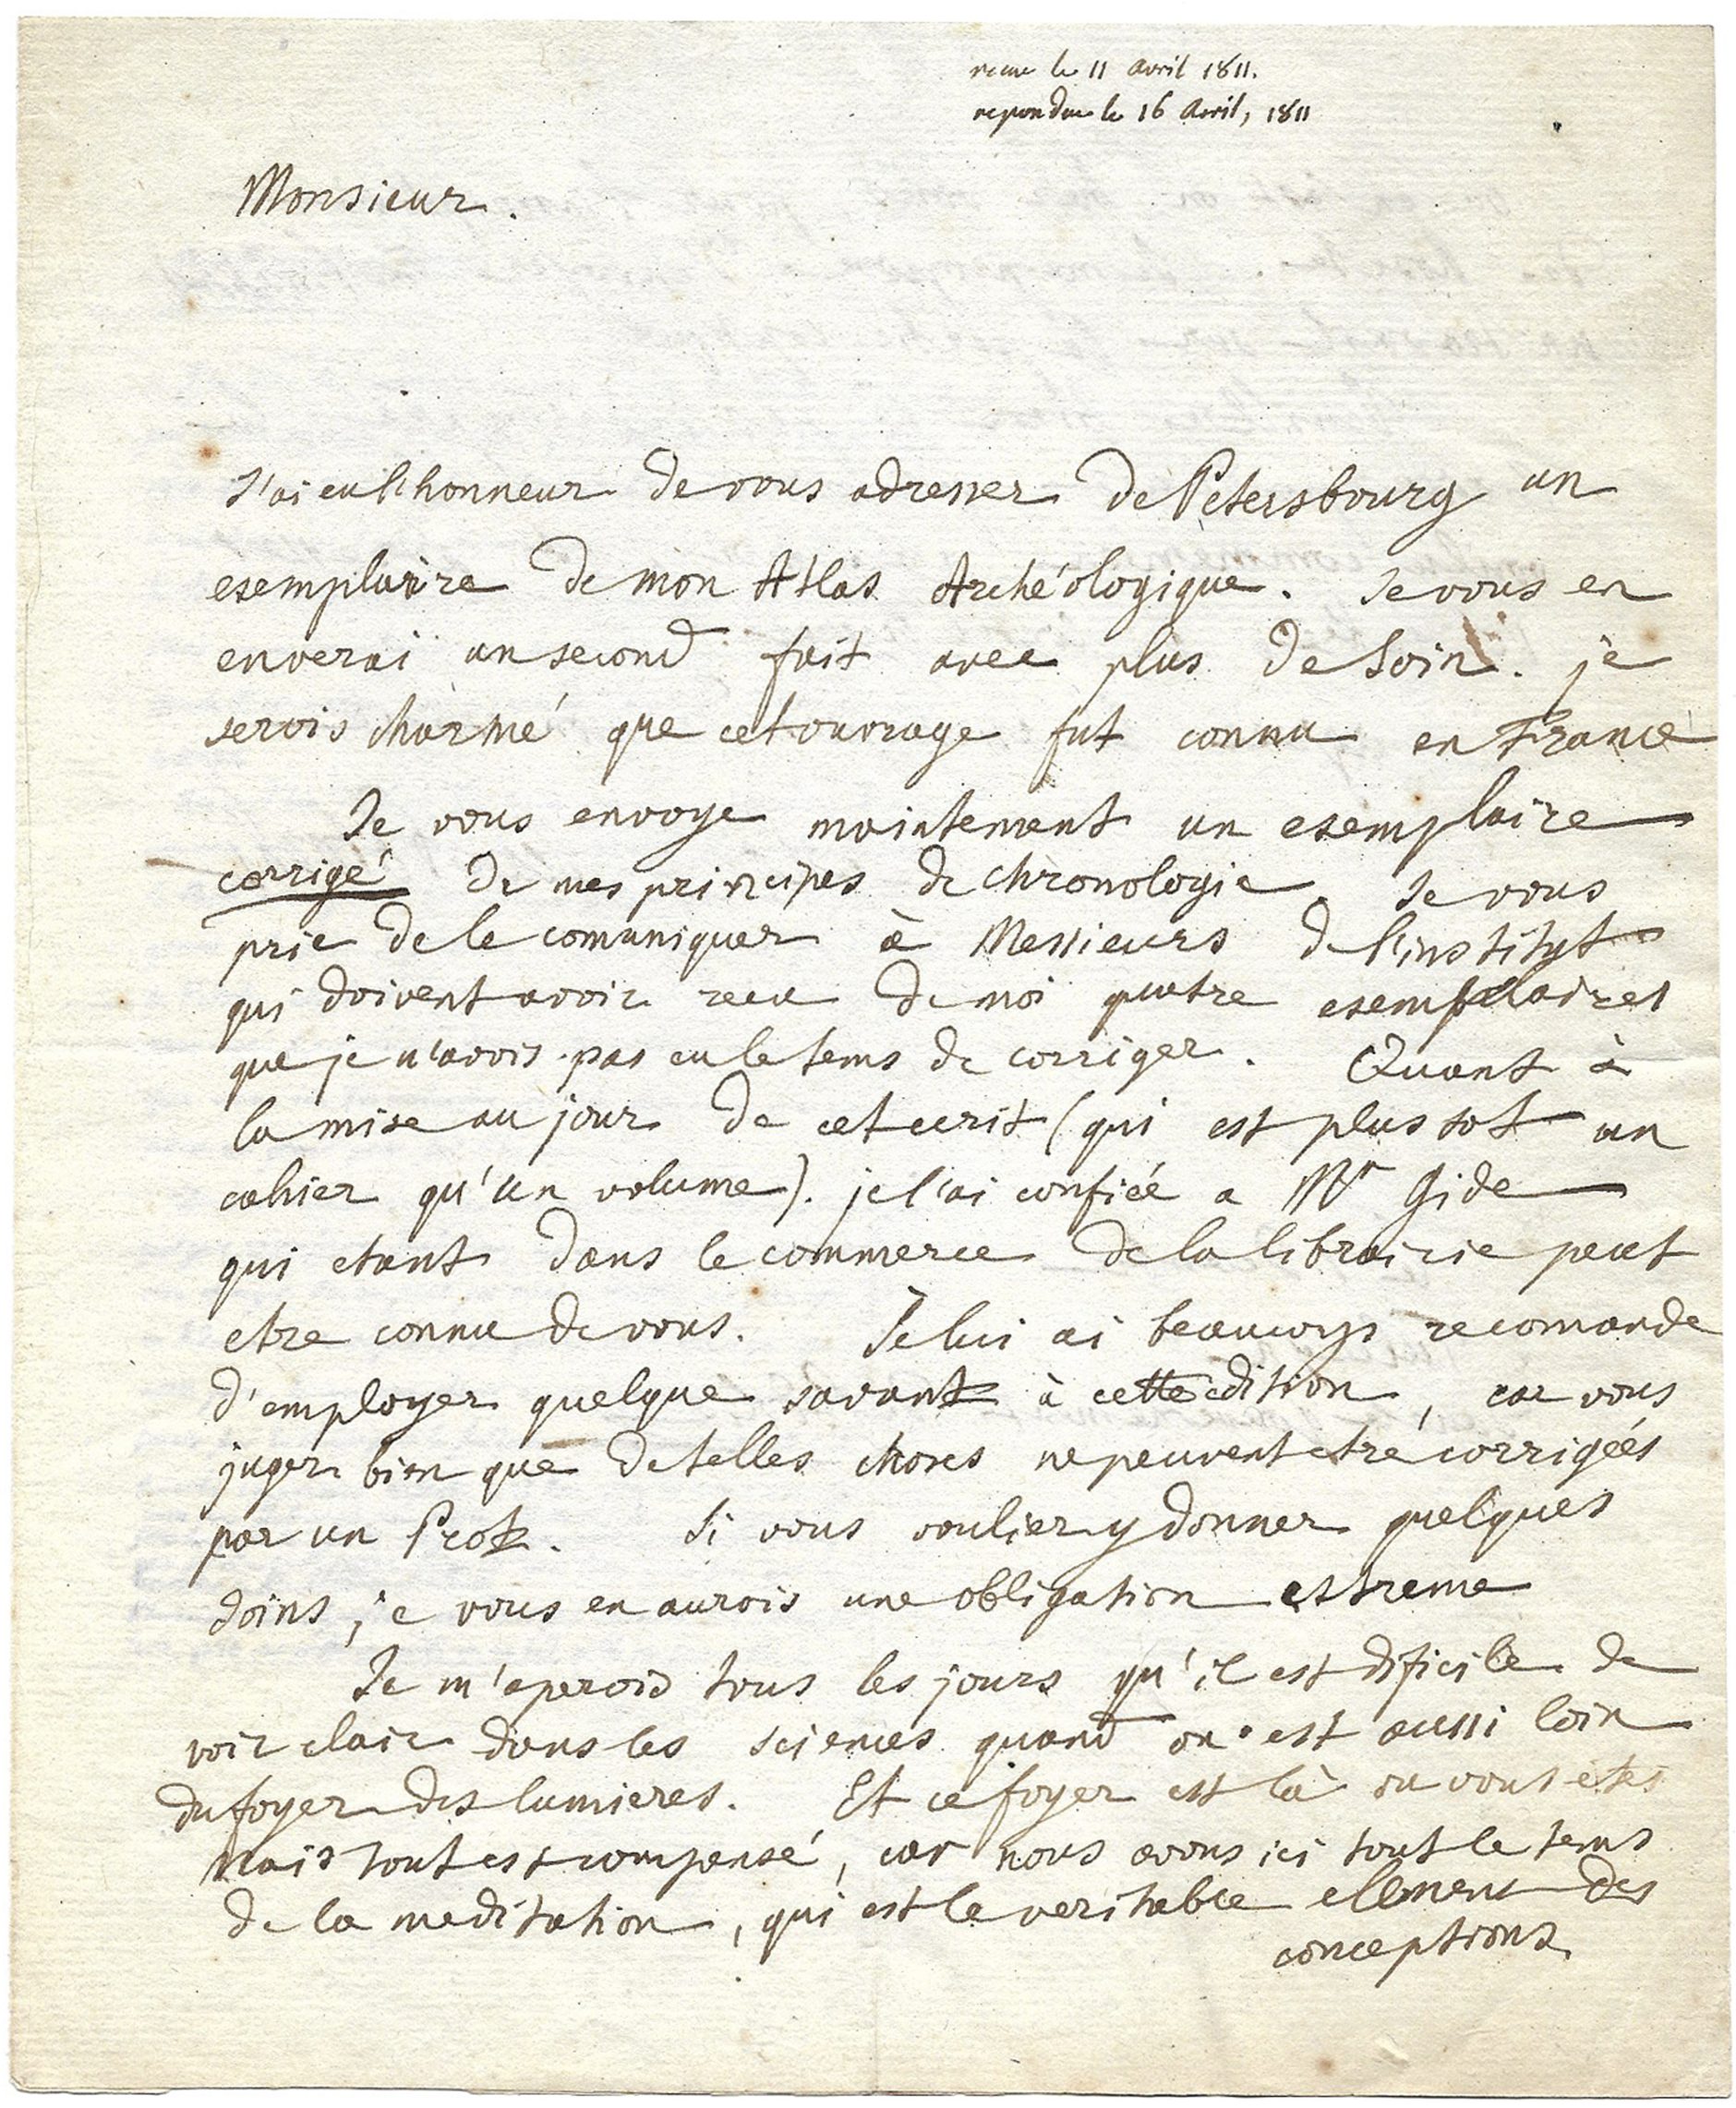 recue le 11 avril 1811.
repondue le 16 Avril, 1811
Monsieur.
J'ai eu l'honneur de vous adresser de Petersbourg un
esemplaire de mon Atlas Archéologique. Je vous en
enverai un second fait avec plus de soin. je
serois charmé que cet ouvrage fut connu en France
Je vous envoye maintenant un esemplaire
corrigé de mes principes de chronologie. Je vous
prie de le comuniquer à Messieurs de l'institut
qui doivent avoir recu de moi quatre esemplaires
que je n'avois pas eu le tems de corriger. Quant à
la mise au jour de cet ecrit (qui est plus tot un
cahier qu'un volume). je l'ai confiée a Mr Gide
qui etant dans le commerce de la librairie peut
etre connu de vous. Je lui ai beaucoup recomande
d'employer quelque savant à cette edition, car vous
juger bien que de telles choses ne peuvent etre corrigées
par un Prote. Si vous voulier y donner quelques
soins, je vous en aurois une obligation estreme
Je m'apercois tous les jours qu'il est dificile de
voir clair dans les sciences quand on est aussi loin
du foyer des lumieres. Et ce foyer est là ou vous etes
Mais tout est compensé, car nous avons ici tout le tems
de la meditation, qui est le veritable ellement des
conceptions.